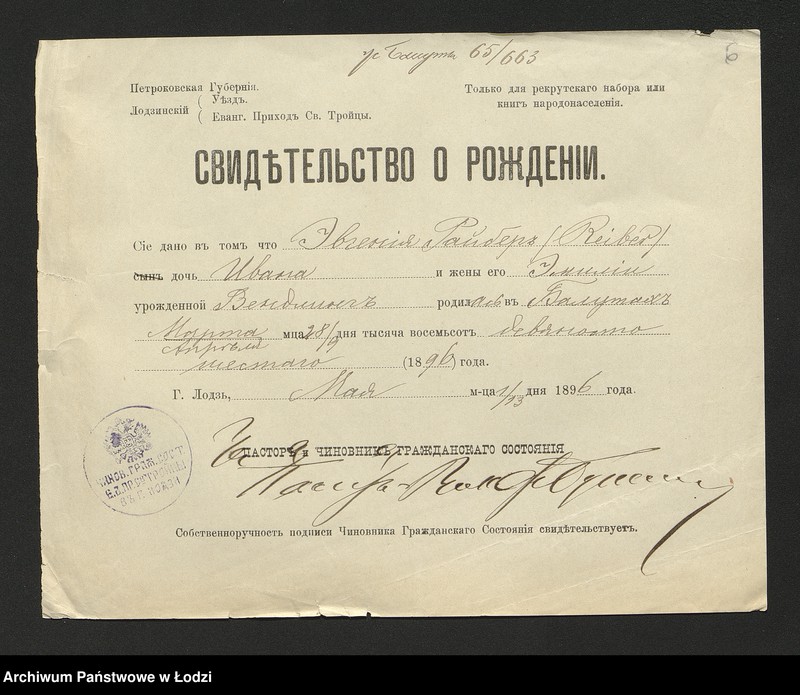 65/663
6
Петроковская Губернія.
Лодзинскій ( Уѣздъ.
( Еванг. Приходъ Св. Тройцы.
Только для рекрутскаго набора или
книгъ народонаселенія.
СВИДѢТЕЛЬСТВО О РОЖДЕНІИ.
Сіе дано въ томъ что Эвгенія Райберъ (Reiber)
сынъ дочь Ивана и жены его Эмиліи
урожденной Вендлингъ родилась въ Балутахъ
Марта мца 28/9 дня тысяча восемьсотъ девяносто
Апрѣля
шестаго (1896) года.
Г. Лодзь, Мая м-ца 1/13 дня 1896 года.
За ПАСТОРА и ЧИНОВНИКА ГРАЖДАНСКАГО СОСТОЯНІЯ
Пасторъ
ЧИНОВ. ГРАЖ. СОСТ.
Е. Л. ПР. СВ. ТРОЙЦЫ
ВЪ Г. ЛОДЗИ
Собственноручность подписи Чиновника Гражданскаго Состоянія свидѣтельствуетъ.
Archiwum Państwowe w Łodzi